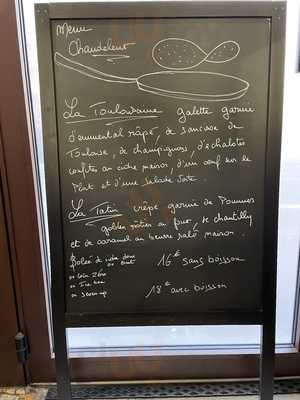 Menu
Chandeleur
La Toulousaine galette garnie
d'emmental râpé, de saucisse de
Toulouse, de champignons, d'échalotes
confites au cidre maison d'un œuf sur le
plat et d'une salade verte.
La Tatin crêpe garnie de Pommes
golden rôties au four, de chantilly
et de caramel au beurre salé maison.
Bolée de cidre doux
ou brut
ou Coca Zéro
ou Ice tea
16€ sans boisson
18€ avec boisson